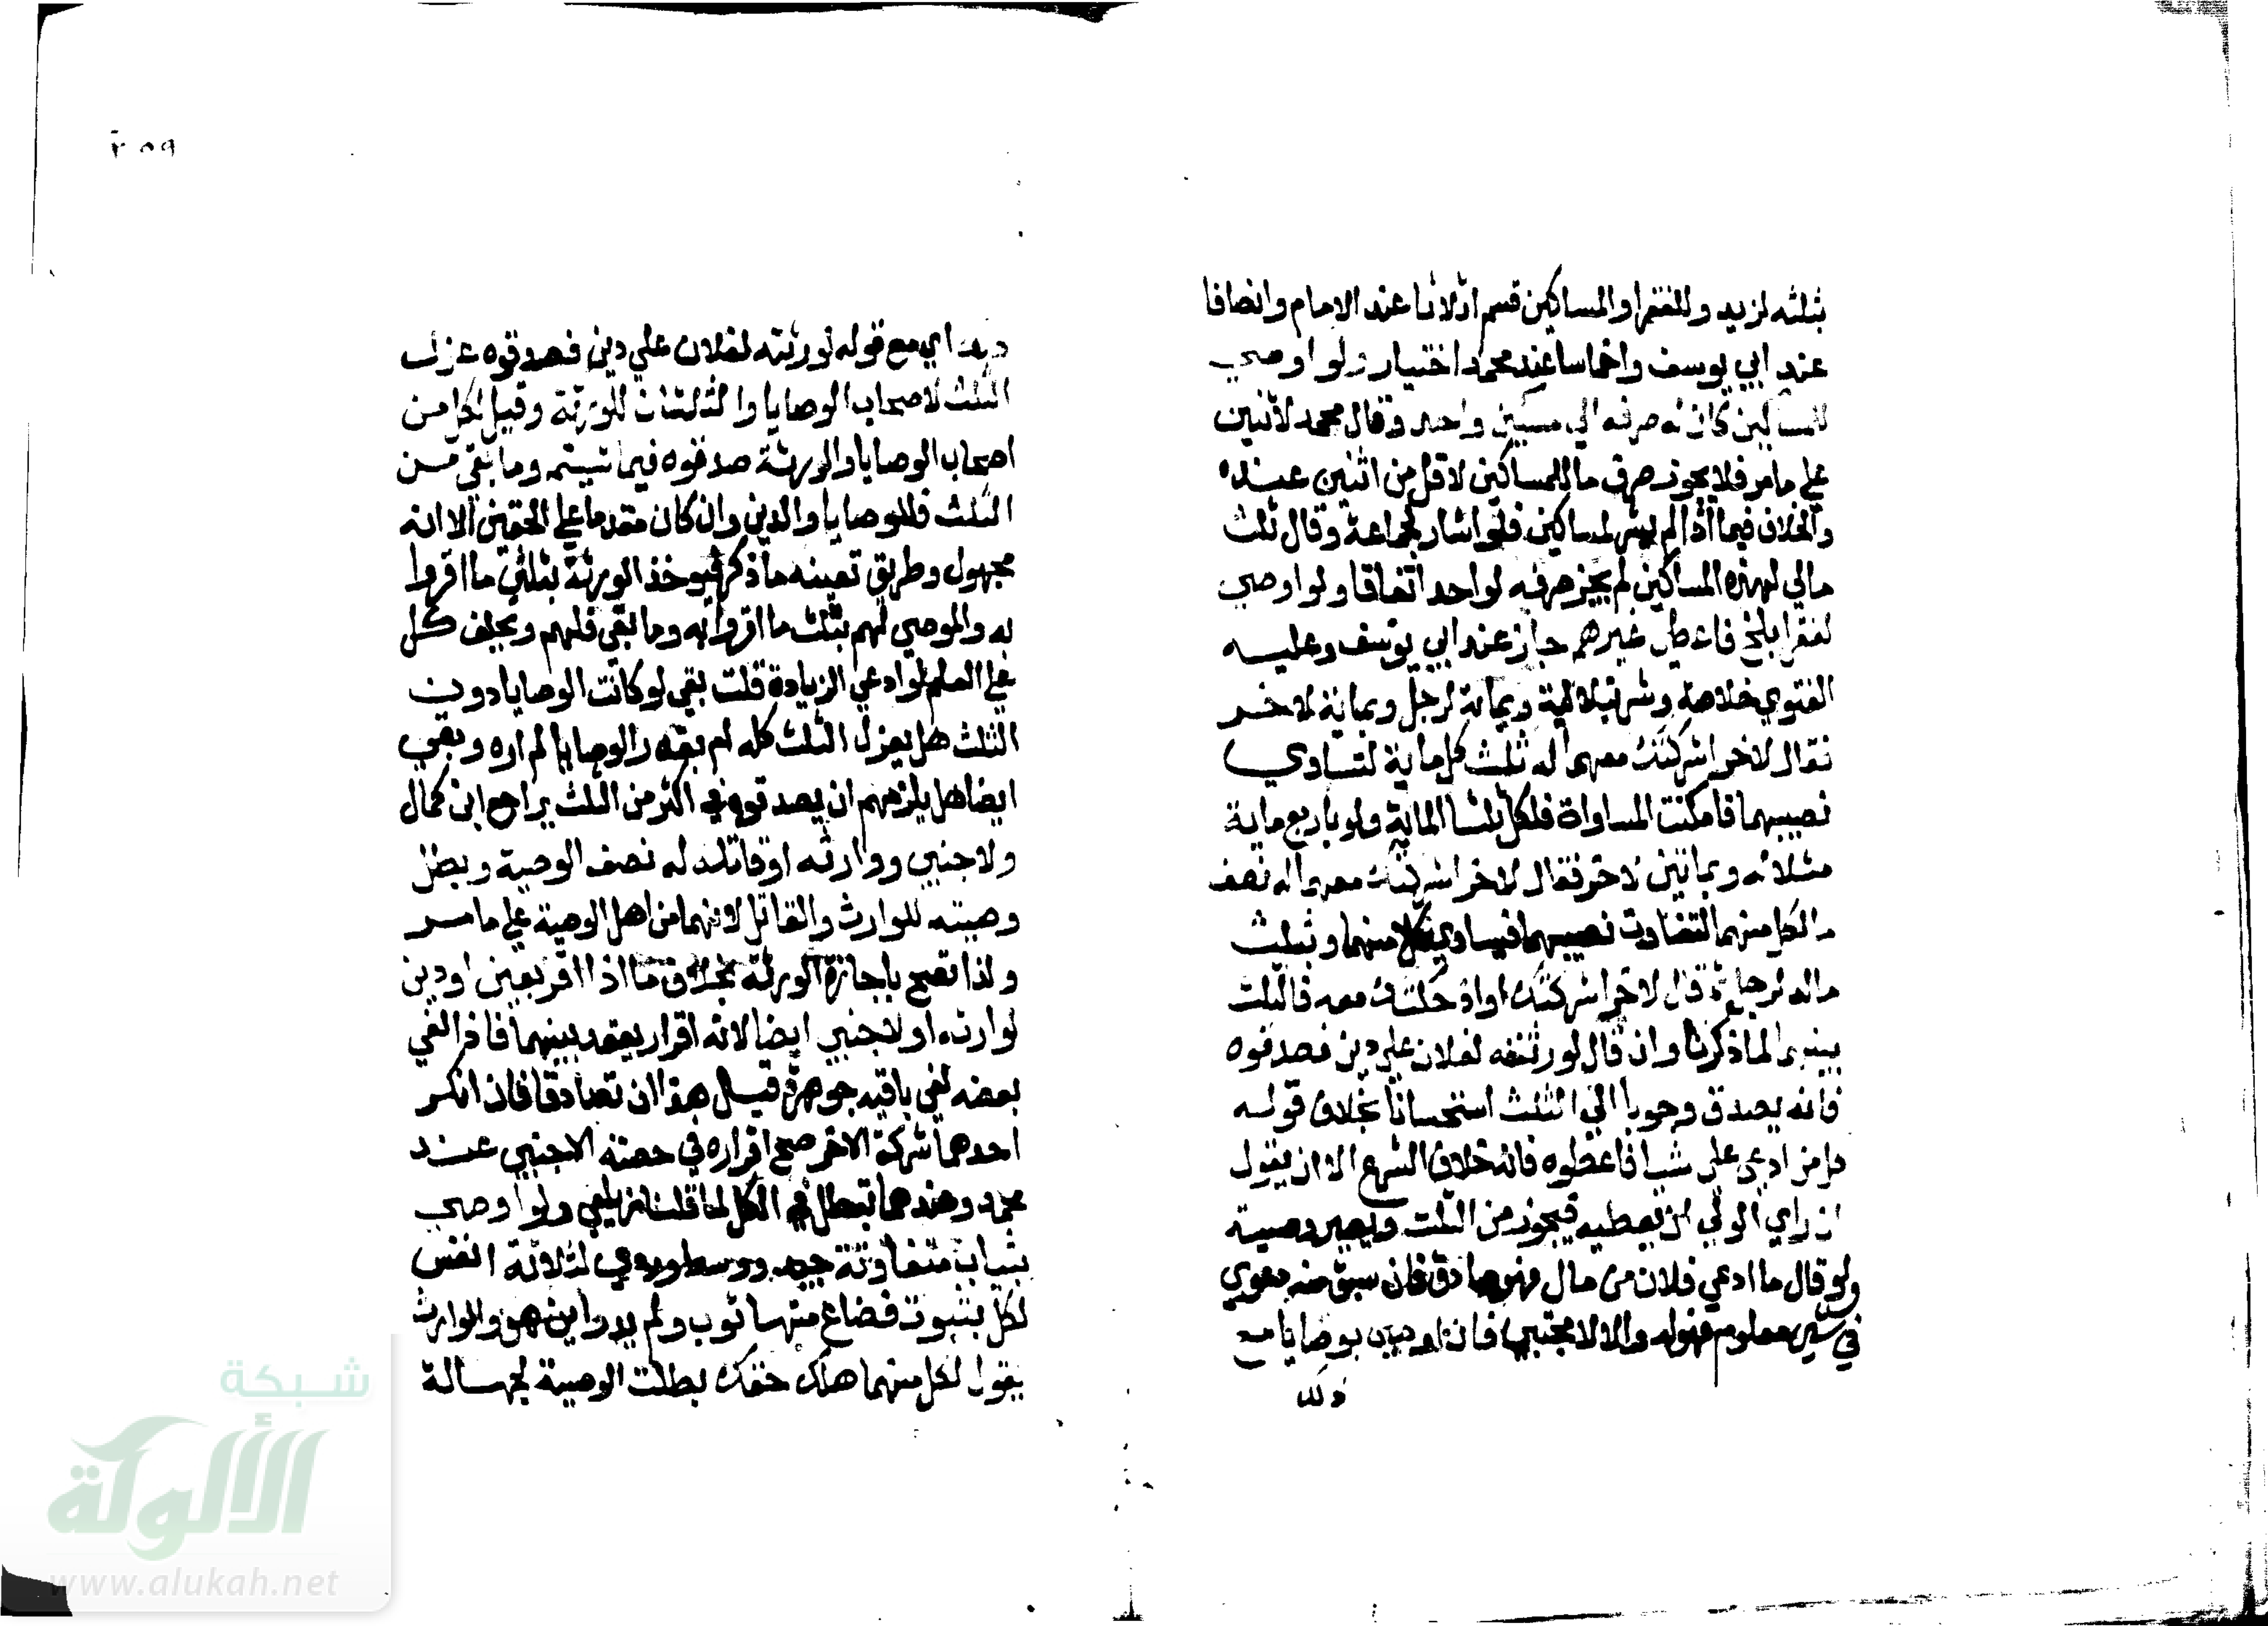 بثلثه لزيد وللفقرا والمساكين قسم اثلاثا عند الامام وانصافا
عند ابي يوسف واخماسا عند محمد اختيار ولو اوصي
للمساكين كان له صرفه الي مسكين واحد وقال محمد لاثنين
علي مامر فلا يجوز صرف ما للمساكين لاقل من اثنين عنده
والخلاف فيما اذا لم يشر لمساكين فلو اشار لجماعة وقال ثلث
مالي لهذه المساكين لم يجز صرفه لواحد اتفاقا ولو اوصي
لفقرا بلخ فاعطي غيرهم جاز عند ابي يوسف وعليه
الفتوي خلاصة وشرنبلالية وبماية لرجل وبماية لاخر
فقال لاخر اشركتك معهما له ثلث كل ماية لتساوي
نصيبهما فامكنت المساواة فلكل ثلثا الماية ولو باربع ماية
مثلا له وبماتين لاخر فقال لاخر اشركتك معهما له نصف
ما لكل منهما لتفاوت نصيبهما فيساوي كلا منهما وبثلث
ماله لرجل ثم قال لاخر اشركتك او ادخلتك معه فالثلث
بينهما لما ذكرنا وان قال لورثته لفلان علي دين فصدقوه
فانه يصدق وجوبا الي الثلث استحسانا بخلاف قوله
كل من ادعي علي شيا فاعطوه فانه خلاف الشرع الا ان يقول
ان راي الولي ان يعطيه فيجوز من الثلث ويصير وصية
ولو قال ما ادعي فلان من مال فهو صادق فان سبق منه دعوي
في شي معلوم فهو له والا لا مجتبي فان اوصي بوصايا مع
ذلك
٢٥٩
ذلك اي مع قوله لورثته لفلان علي دين فصدقوه عزل
الثلث لاصحاب الوصايا والثلثان للورثة وقيل لكل من
اصحاب الوصايا والورثة صدقوه فيما شيتم وما بقي من
الثلث فللوصايا والدين وان كان مقدما علي الحقين الا انه
مجهول وطريق تعيينه ما ذكر فيوخذ الورثة بثلثي ما اقروا
به والموصي لهم بثلث ما اقروا به وما بقي فلهم ويحلف كل
علي العلم لو ادعي الزيادة قلت بقي لو كانت الوصايا دون
الثلث هل يعزل الثلث كله ام بقدر الوصايا لم اره وبقي
ايضا هل يلزمهم ان يصدقوه في اكثر من الثلث يراجع ابن كمال
ولاجنبي ووارثه او قاتله له نصف الوصية وبطل
وصيته للوارث والقاتل لانهما من اهل الوصية علي ما مر
ولذا تصح باجازة الورثة بخلاف ما اذا اقر بعين او دين
لوارثه او لاجنبي ايضا لانه اقرار بعقد بينهما فاذا لغي
بعضه لغي باقيه جوهرة قيل هذا ان تصادقا فان انكر
احدهما شركة الاخر صح اقراره في حصة الاجنبي عند
محمد وعندهما تبطل في الكل لما قلنا زيلعي ولو اوصي
بثياب متفاوتة جيد ووسط وردي لثلاثة انفس
لكل بثوب فضاع منها ثوب ولم يدر اين هو والوارث
يقول لكل منهما هلك حقك بطلت الوصية لجهالة
شبكة
الألوكة
www.alukah.net